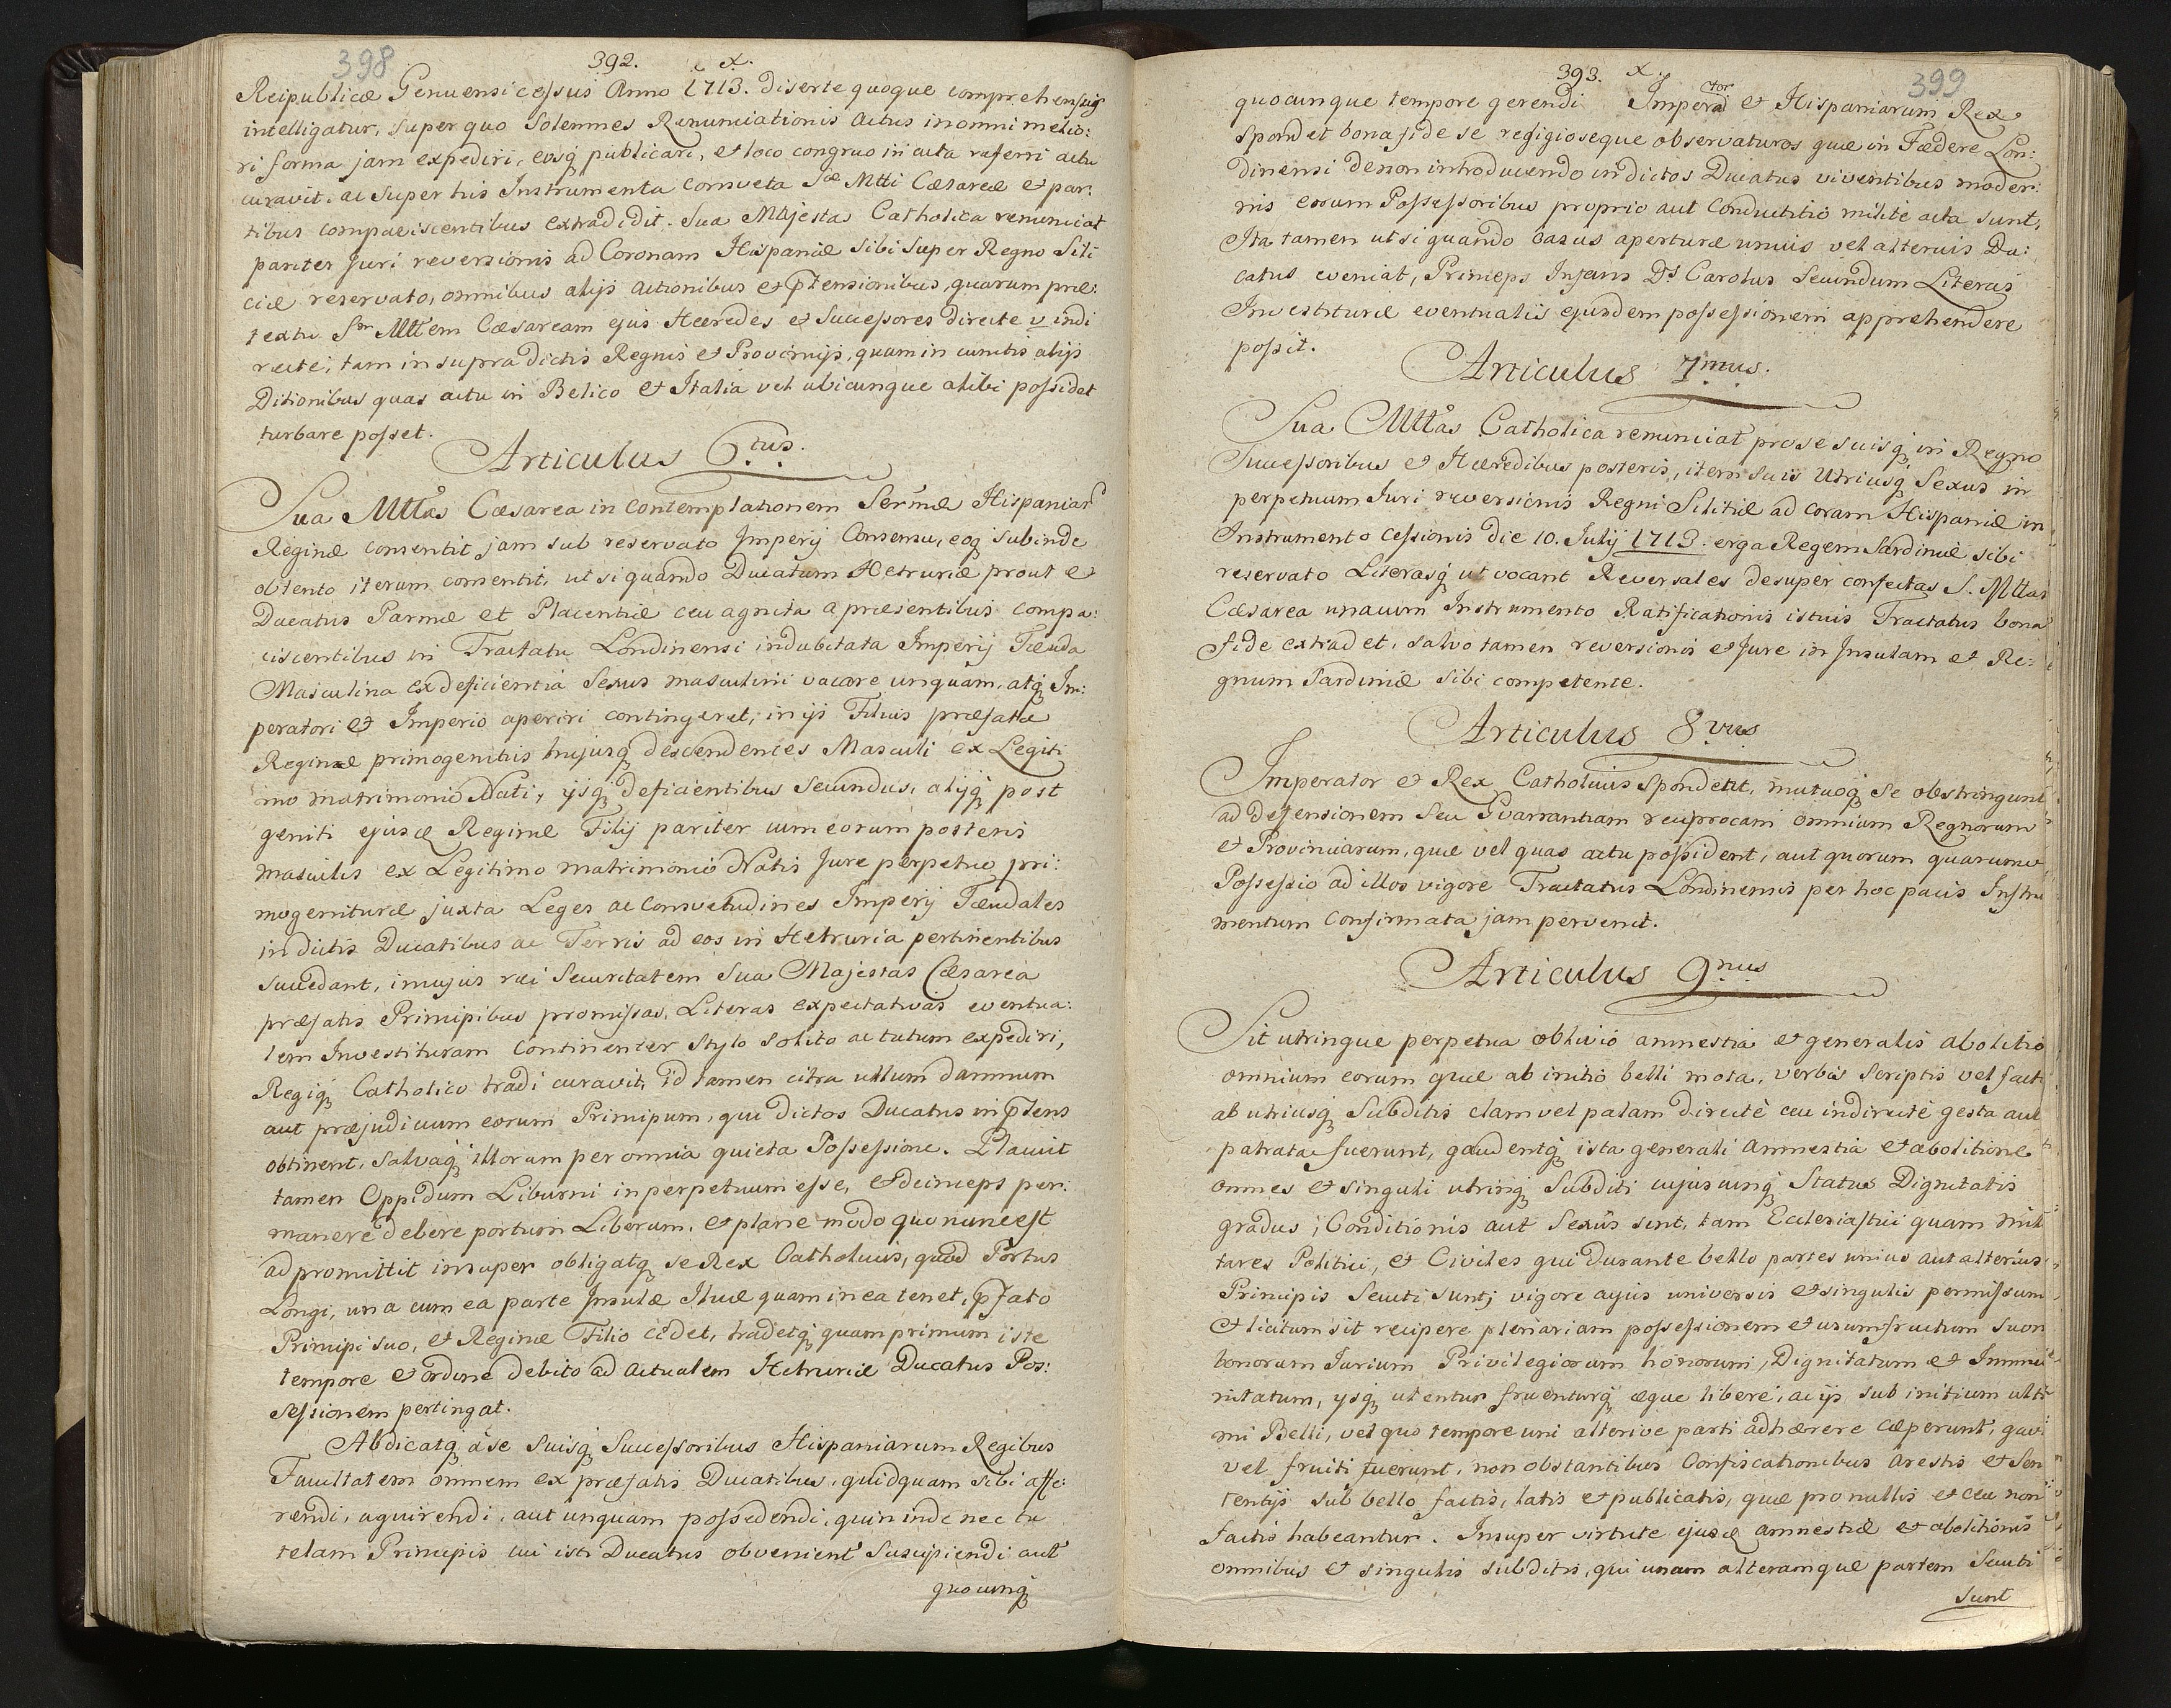 398
392. x.
Reipublicæ Genuensi cessus Anno 1713. diserte quoque comprehensus
intelligatur, super quo Solemnes Renunciationis Actus in omni melio:
ri forma jam expediri, eosq publicari, et loco congruo in acta referri actu
curavit, ac super his Instrumenta Consveta Sæ Mtti Cæsareæ et par:
tibus compaciscentibus extradidit. Sua Majestas Catholica renunciat
pariter Juri reversionis ad Coronam Hispaniæ sibi super Regno Sili
ciæ reservato, omnibus alijs Actionibus et ptensionibus, quarum præ:
textu Sm Mttem Cæsaream ejus Hæredes et Successores directe v indi
recte, tam in supradictis Regnis et Provincijs, quam in cunctis alijs
Ditionibus quas actu in Belico et Italia vel ubicunque alibi possidet
turbare posset.
Articulus 6tus.
Sua Mttas Cæsarea in contemplationem Sermæ Hispaniar
Reginæ consentit jam sub reservato Imperij Consensu, eoq subinde
obtento iterum consentit, ut si quando Ducatum Hetruriæ prout et
Ducatus Parmæ et Placentiæ ceu agnita a præsentibus compa:
ciscentibus in Tractatu Londinensi indubitata Imperij Fæuda
Masculina ex deficientia Sexus masculini vacare unquam, atq Im:
peratori et Imperio aperiri contingeret, in ijs Filius præfatæ
Reginæ primogenitus hujusq descendentes Masculi ex Legiti
mo matrimonio Nati, ijsq deficientibus Secundus, alijq post
geniti ejusd Reginæ Filij pariter cum eorum posteris
masculis ex Legitimo matrimonio Natis Jure perpetuo pri:
mogenituræ juxta Leges ac Consvetudines Imperij Fæudales
in dictis Ducatibus ac Terris ad eos in Hetruria pertinentibus
succedant, in cujus rei Securitatem Sua Majestas Cæsarea
præfatis Principibus promissas, Literas expectativas eventua:
lem Investituram Continenter Stylo Solito ac tutum expediri,
Regiq Catholico tradi curavit, id tamen citra ullum damnum
aut præjudicium eorum Principum, qui dictos Ducatus in ptens
obtinent, Salvaq illorum per omnia quieta Possessione. Placuit
tamen Oppidum Liburni in perpetuum esse, et deinceps per:
manere debere portum Liberum, et plane modo quo nunc est
ad promittit insuper obligatq se Rex Catholicus, quod Portus
Longi, una cum ea parte Insulæ Ilvæ quam in ea tenet, pfato
Principi suo, et Reginæ Filio cedet, tradetq quam primum iste
tempore et ordine debito ad actualem Hetruriæ Ducatus Pos:
sessionem pertingat.
Abdicatq a se Suisq Successoribus Hispaniarum Regibus
Facultatem omnem ex præfatis Ducatibus, quidquam sibi asse:
rendi, aquirendi, aut unquam possedendi, quin inde nec tu
telam Principis cui isti Ducatus obvenient Suscipiendi aut
quocunq
399
393. x.
quocunque tempore gerendi Imperator et Hispaniarum Rex
spondet bona fide se religioseque observaturos quæ in Fædere Lon:
dinensi de non introducendo in dictos Ducatus viventibus moder:
nis eorum Possessoribus proprio aut Conductitio milite acta sunt,
Ita tamen ut si quando Casus aperturæ unius vel alterius Du:
catus eveniat, Princeps Infans Ds Carolus Secundum Literas
Investituræ eventualis ejusdem possessionem apprehendere
possit.
Articulus 7mus.
Sua Mttas Catholica renunciat pro se suisq in Regno
Successoribus et Hæredibus posteris, item suis Utriusq Sexus in
perpetuum Juri reversionis Regni Silitiæ ad coram Hispaniæ in
Instrumento Cessionis die 10. Julij 1713. erga Regem Sardiniæ sibi
reservato Literasq ut vocant Reversales desuper confectas S. Mttas
Cæsarea unacum Instrumento Ratificationis istuis Tractatus bona
fide extradet, salvo tamen reversionis et Jure in Insulam et Re:
gnum Sardiniæ Sibi competente.
Articulus 8vus
Imperator et Rex Catholicus Spondent, mutuoq se obstringunt
ad Defensionem Seu Gvarrantiam reciprocam omnium Regnorum
et Provinciarum, quæ vel quas actu possident, aut quorum quarumve
Possessio ad illos vigore Tractatus Londinensis per hoc pacis Instru
mentum Confirmata jam pervenit.
Articulus 9nus
Sit utrinque perpetua oblivio amnestia et generalis abolitio
omnium eorum quæ ab initio belli mota, verbis scriptis vel facti
ab utriusq Subditis clam vel palam directè ceu indirectè gesta aut
patrata fuerunt, gaudentq ista generali Amnestia et abolitione
omnes et singuli utrinq Subditi cujuscunq Status Dignitatis
gradus, Conditionis aut Sexûs sint, tam Ecclesiastici quam mili
tares Politici, et Civiles qui durante bello partes unius aut alterius
Principis Secuti sunt; vigore cujus universis et singulis permissum
et licitum sit recipere plenariam possessionem et usumfructum suor
bonorum Jurium Privilegiorum honorum, Dignitatum et Immu
nitatum, ijsq utentur fruenturq æque libere, ac ijs sub initium ulti
mi Belli, vel quo tempore uni alterive parti adhærere cæperunt, gavi
vel fruiti fuerunt, non obstantibus Confiscationibus Arestis et Sen
tentijs sub bello factis, latis et publicatis, quæ pro nullis et ceu non
factis habeantur. Insuper virtute ejusd amnestiæ et abolitionis
omnibus et singulis subditis, qui unam alteramque partem Secuti
Sunt